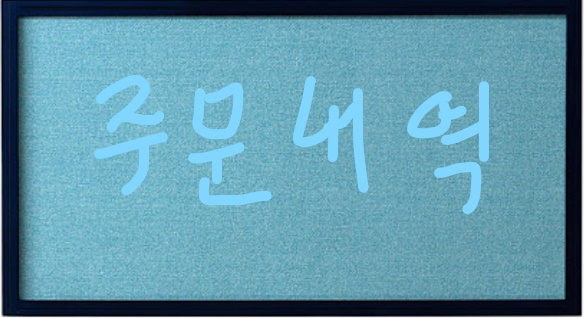 주문내역